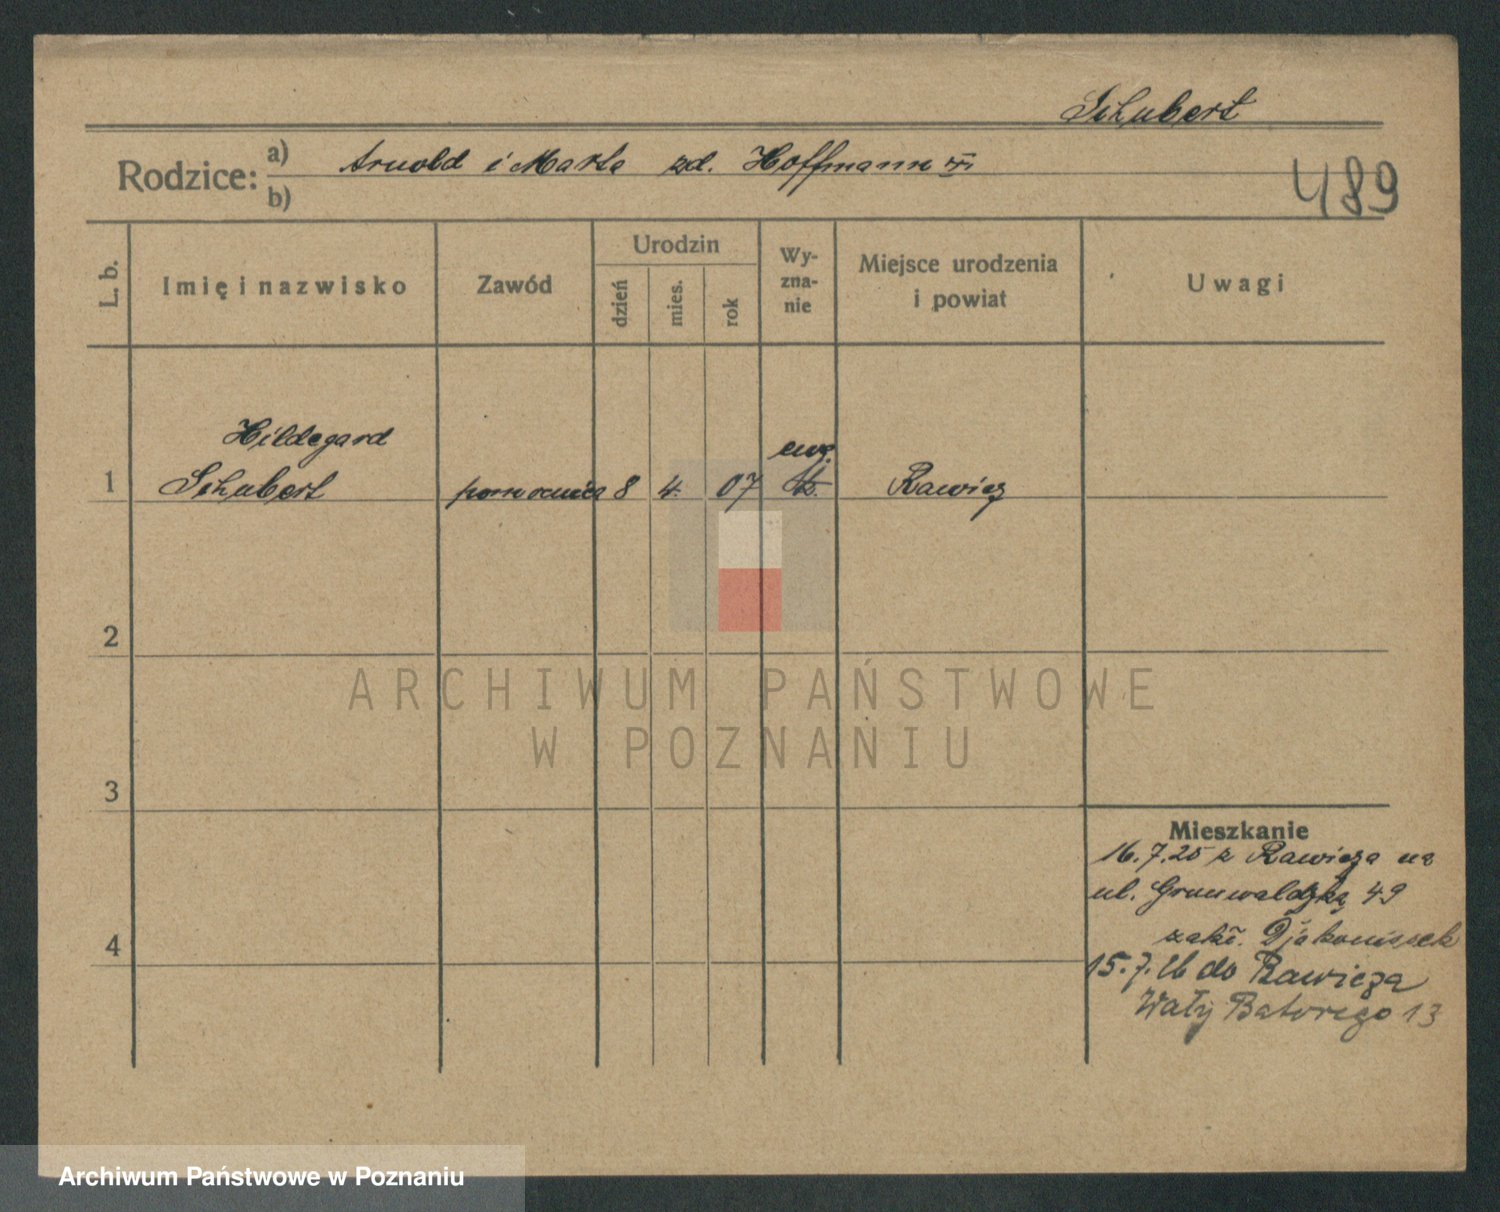 Schubert
Rodzice: a) Arnold i Marta zd. Hoffmann
b)
489
L. b.
Imię i nazwisko
Zawód
Urodzin
dzień
mies.
rok
Wy-
zna-
nie
Miejsce urodzenia
i powiat
Uwagi
Hildegard
ewg.
1 Schubert pomocnica 8 4. 07 Rawicz
2
ARCHIWUM PAŃSTWOWE
W POZNANIU
3
Mieszkanie
16.7.25 z Rawicza na
ul. Grunwaldzką 49
zakł. Djakonissek
4
15.7.26 do Rawicza
Wały Batorego 13
Archiwum Państwowe w Poznaniu